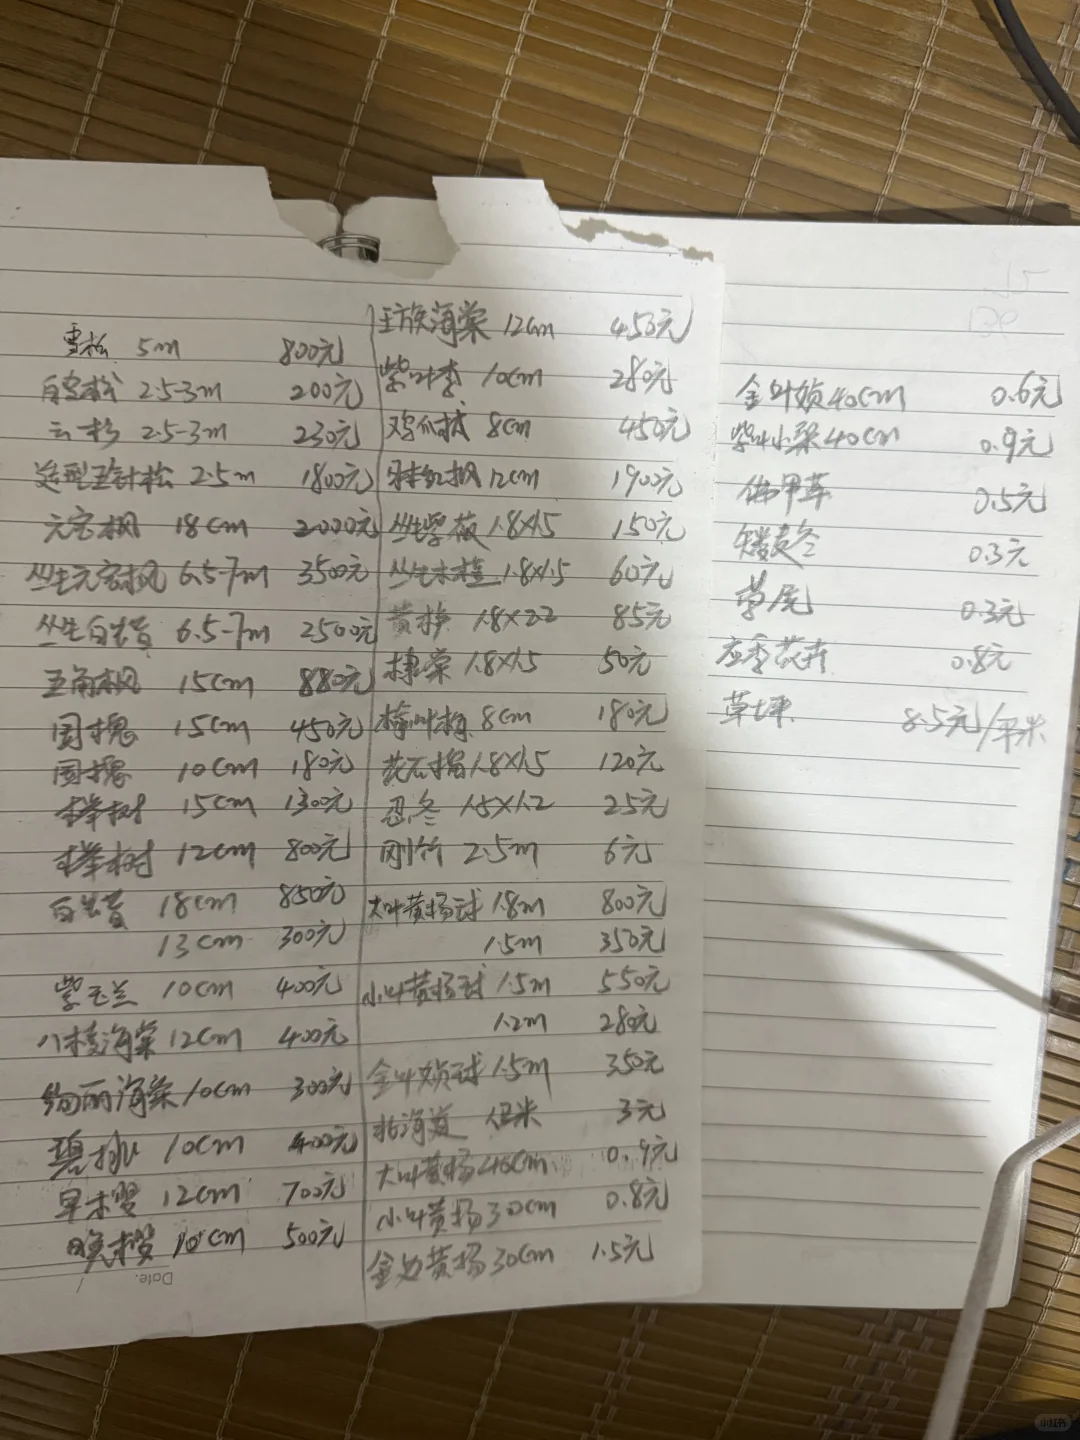 雪松 5m 800元
白皮松 2.5-3m 200元
云杉 2.5-3m 230元
造型五针松 2.5m 1800元
元宝枫 18cm 2000元
丛生元宝枫 6.5-7m 3500元
丛生白蜡 6.5-7m 2500元
五角枫 15cm 880元
国槐 15cm 450元
国槐 10cm 180元
榉树 15cm 1300元
榉树 12cm 800元
白蜡 18cm 850元
13cm 300元
紫玉兰 10cm 400元
八棱海棠 12cm 400元
绚丽海棠 10cm 300元
碧桃 10cm 400元
早樱 12cm 700元
晚樱 10cm 500元
Date.
王族海棠 12cm 450元
紫叶李 10cm 280元
鸡爪槭 8cm 450元
日本红枫 12cm 1900元
丛生紫薇 1.8×1.5 150元
丛生木槿 1.8×1.5 60元
黄栌 1.8×2.2 85元
棣棠 1.8×1.5 50元
8cm 180元
花石榴 1.8×1.5 120元
忍冬 1.5×1.2 25元
刚竹 2.5m 6元
大叶黄杨球 1.8m 800元
1.5m 350元
小叶黄杨球 1.5m 550元
1.2m 280元
金叶女贞球 1.5m 350元
3元
大叶黄杨 40cm 0.9元
小叶黄杨 30cm 0.8元
金边黄杨 30cm 1.5元
金叶女贞 40cm 0.6元
紫叶小檗 40cm 0.9元
佛甲草 0.5元
矮麦冬 0.3元
鸢尾 0.3元
应季花卉 0.8元
草坪 8.5元/平米
小红书